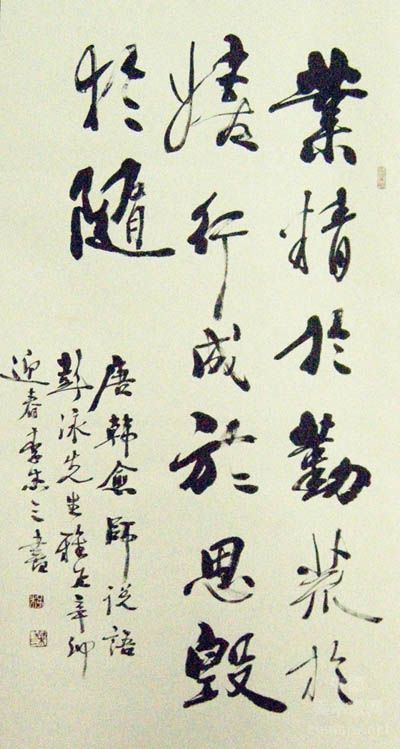 業精於勤荒於
嬉行成於思毀
於隨
唐韓愈師說語
彭泳先生雅正辛卯
迎春李之書